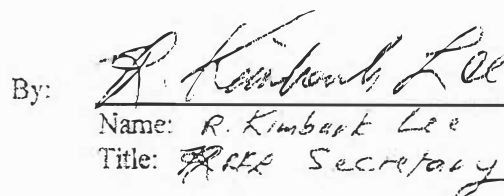 By: R. Kimbark Lee
Name: R. Kimbark Lee
Title: Secretary